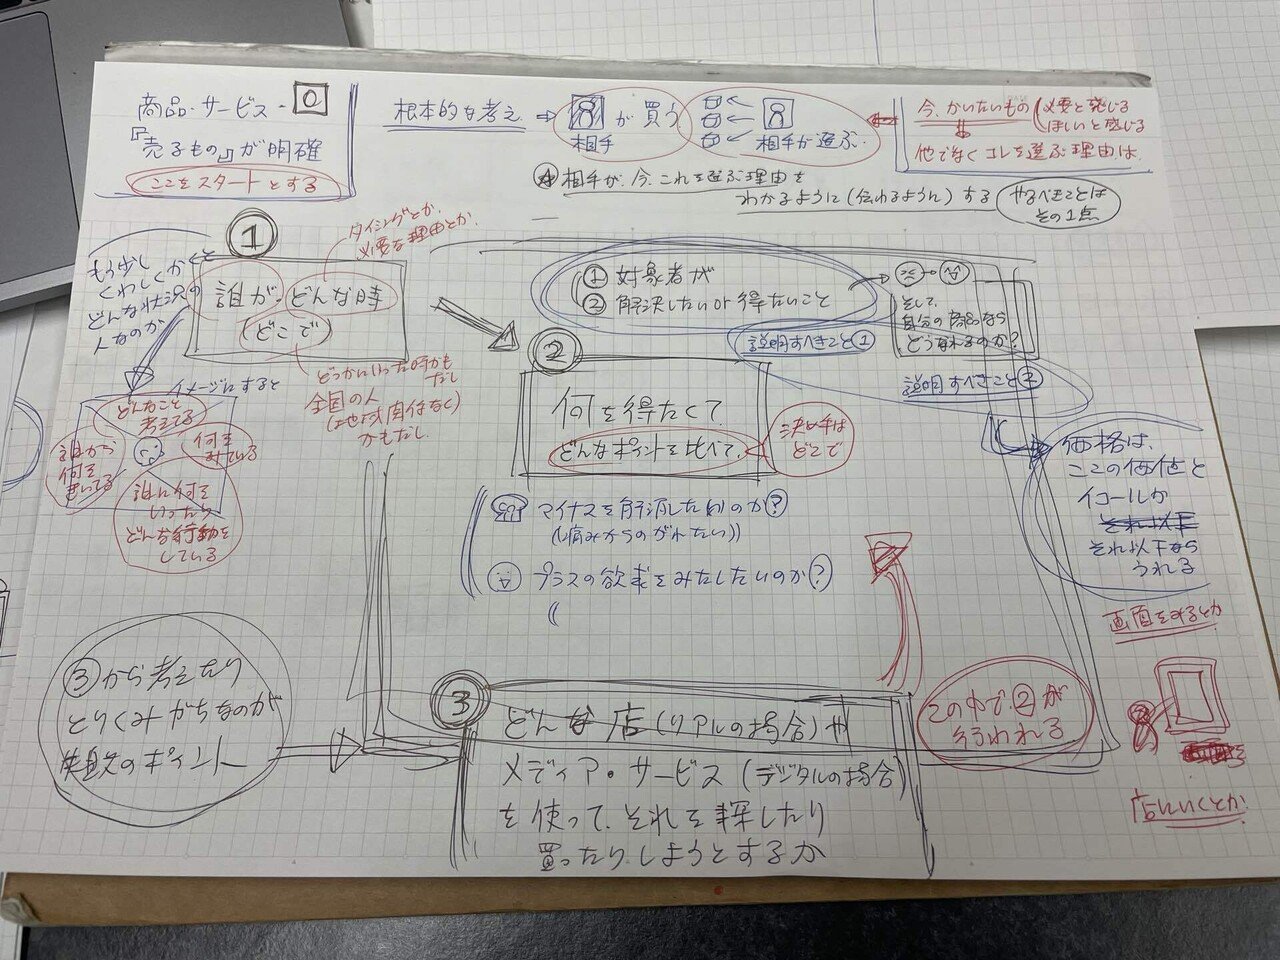 商品・サービス・
『売るもの』が明確
ここをスタートとする
根本的な考え
が買う
相手
相手が選ぶ.
今、かいたいもの
必要と感じる
ほしいと感じる
他でなくコレを選ぶ理由は
相手が、今、これを選ぶ理由を
わかるように(伝わるように)する
やるべきことは
その1点
①
もう少し
くわしくかくと
どんな状況の
人なのか
タイミングとか.
必要な理由とか.
誰が、どんな時
どこで
どっかにいった時かも
だし
全国の人
(地域関係なく)
かもだし
イメージにすると
どんなこと
考えてる
誰から
何を
きいてる
何を
みている
誰に何を
いったら
どんな行動を
している
① 対象者が
② 解決したいor得たいこと
そして、
自分の商品なら
どうなれるのか?
説明すべきこと①
説明すべきこと②
②
何を得たくて
どんなポイントを比べて、
決め手は
どこで
マイナスを解消したいのか?
(痛みからのがれたい))
プラスの欲求をみたしたいのか?
価格は、
ここの価値と
イコールか
それ以下
それ以下なら
うれる
画面をみるとか
店にいくとか
③から考えたり
とりくみがちなのが
失敗のポイント
③
どんな店(リアルの場合)や
メディア・サービス(デジタルの場合)
を使って、それを探したり
買ったりしようとするか
この中で②が
行われる